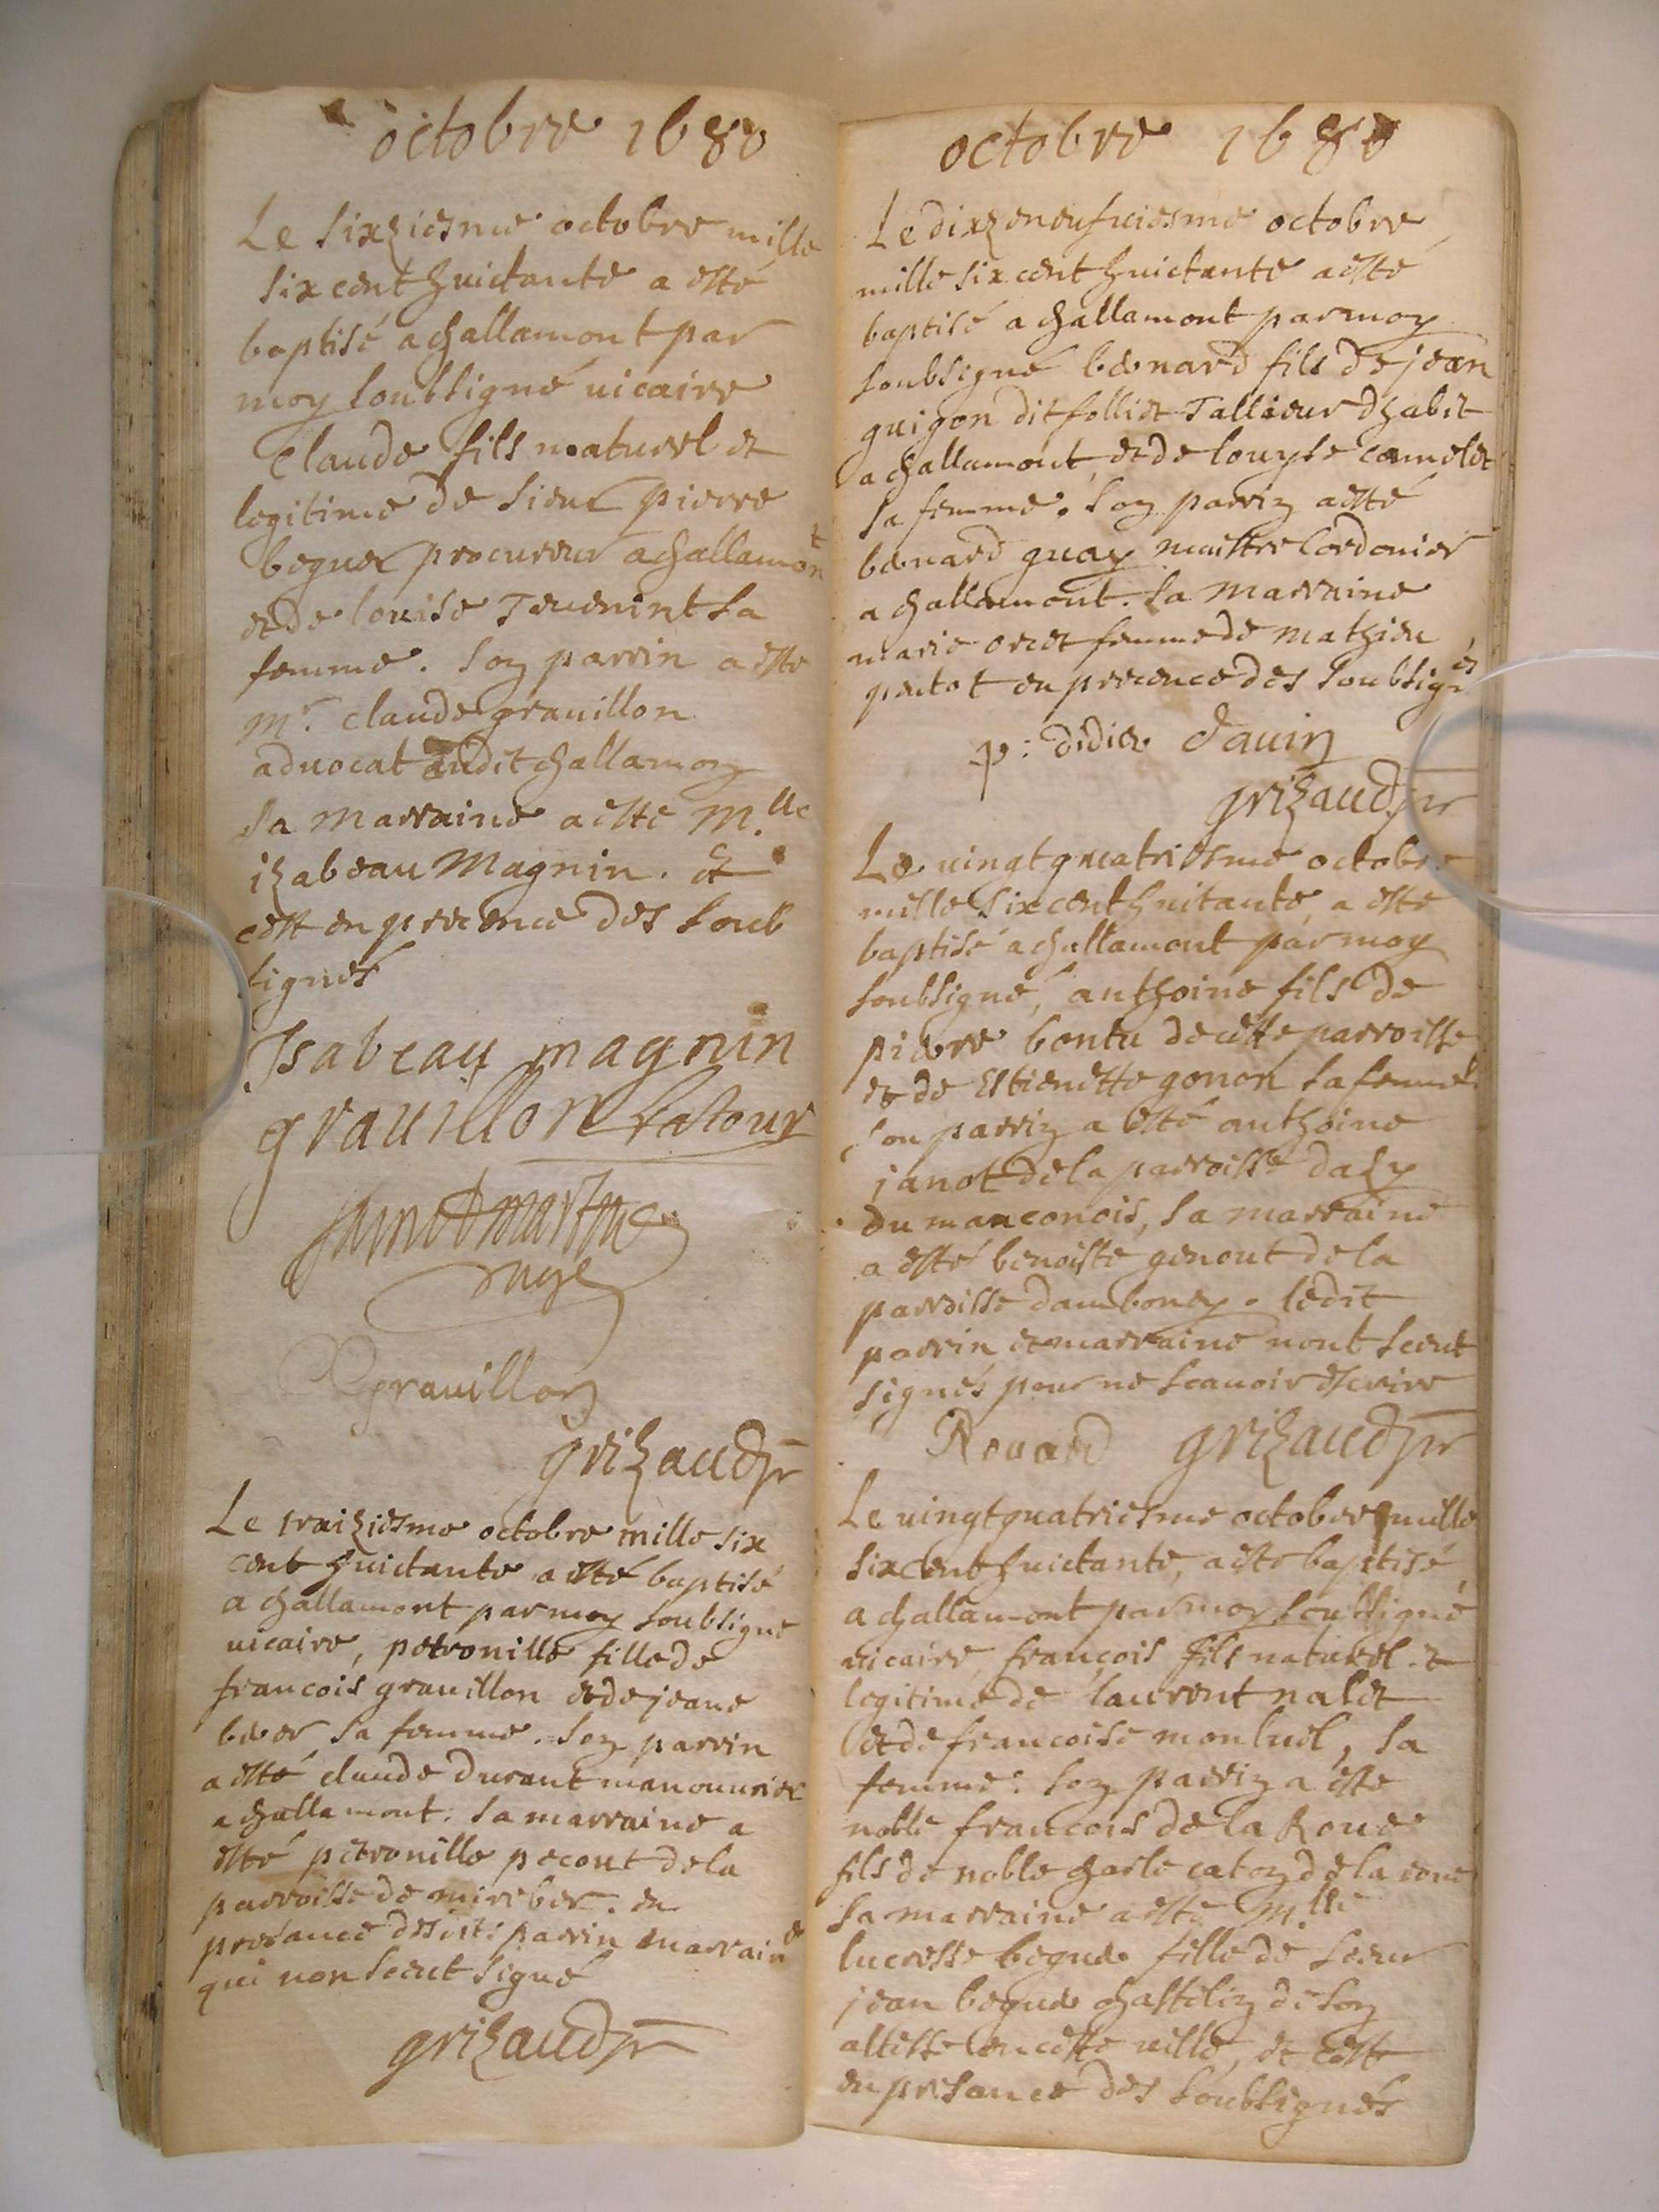 octobre 1680
Le sixziesme octobre mille
six cent huictante a esté
baptisé a challamont par
moy soubsigné uicaire
Claude fils naturel et
legitime de sieur pierre
beguer procureur a challamont
et de louise Teuenint sa
femme. Son parrin a este
Mr. claude grauillon
aduocat audit challamon
sa Marraine a este M.lle
izabeau Magnin. et
cest en precence des soub
signés
Isabeau magnin
grauillon Latour
juge
grauillon
grizaud pr
Le traiziesme octobre mille six
cent huictante a esté baptisé
a challamont par moy soubsigné
uicaire, petronille fille de
francois grauillon et de jeane
sa femme. Son parrin
a esté claude durant manouurier
a challamont. sa marraine a
esté petronille pecout de la
parroisse de mireber. en
presance desdits parrin marraine
qui non sceut signé
grizaud pr
octobre 1680
Le dixzeneufuiesme octobre
mille six cent huictante a esté
baptisé a challamont par moy
soubsigné benard fils de jean
guigon dit folliet Tallieur dhabit
a challamont, et de louyse camelet
sa femme. Son parrin a esté
benard guay maistre Cordonier
a challamont. sa Marraine
marie oret femme de mathieu
putot en precence des soubsignés
p: didier dauin
grizaud pr
Le uingt quatriesme octobre
mille six cent huitante, a esté
baptisé a challamont par moy
soubsigné, anthoine fils de
pierre bontu de cette parroisse
et de Estienette gonon sa femme
son parrin a esté anthoine
janot de la parroisse dazy
du manconois, sa marraine
a esté benoiste genout de la
parroisse damboney. ledit
parrin et marraine nont sceut
signés pour ne scauoir escrire
Rouard grizaud pr
Le uingt quatriesme october mille
six cent huictante, a este baptisé
a challamont par moy soubsigné
uicaire, francois fils naturel et
legitime de laurent nalet
et de francoise monluel, sa
femme. son parrin a esté
noble francois de la Roue
fils de noble charle caton de la roue
sa marraine a este M.lle
lucresse begue fille de sieur
jean begue chastelin de son
altesse en ceste uille, et cest
en presance des soubsignés